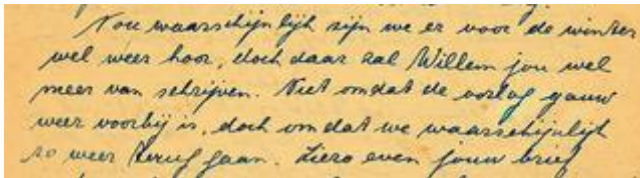 Nou waarschijnlijk zijn we er voor de winter
wel weer hoor, doch daar zal Willem jou wel
meer van schrijven. Niet omdat de oorlog gauw
weer voorbij is, doch omdat we waarschijnlijk
zo weer terug gaan. Ziezo even jouw brief